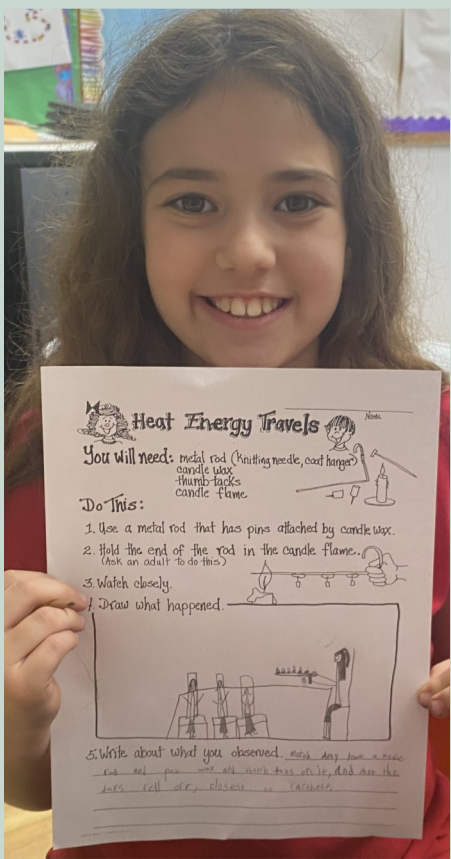 Heat Energy Travels
Name
You will need: metal rod (knitting needle, coat hanger)
candle wax
thumb tacks
candle flame
Do This:
1. Use a metal rod that has pins attached by candle wax.
2. Hold the end of the rod in the candle flame.
(Ask an adult to do this)
3. Watch closely.
4. Draw what happened.
5. Write about what you observed. took a
rod and put wax and on it, and the
fell off, closest